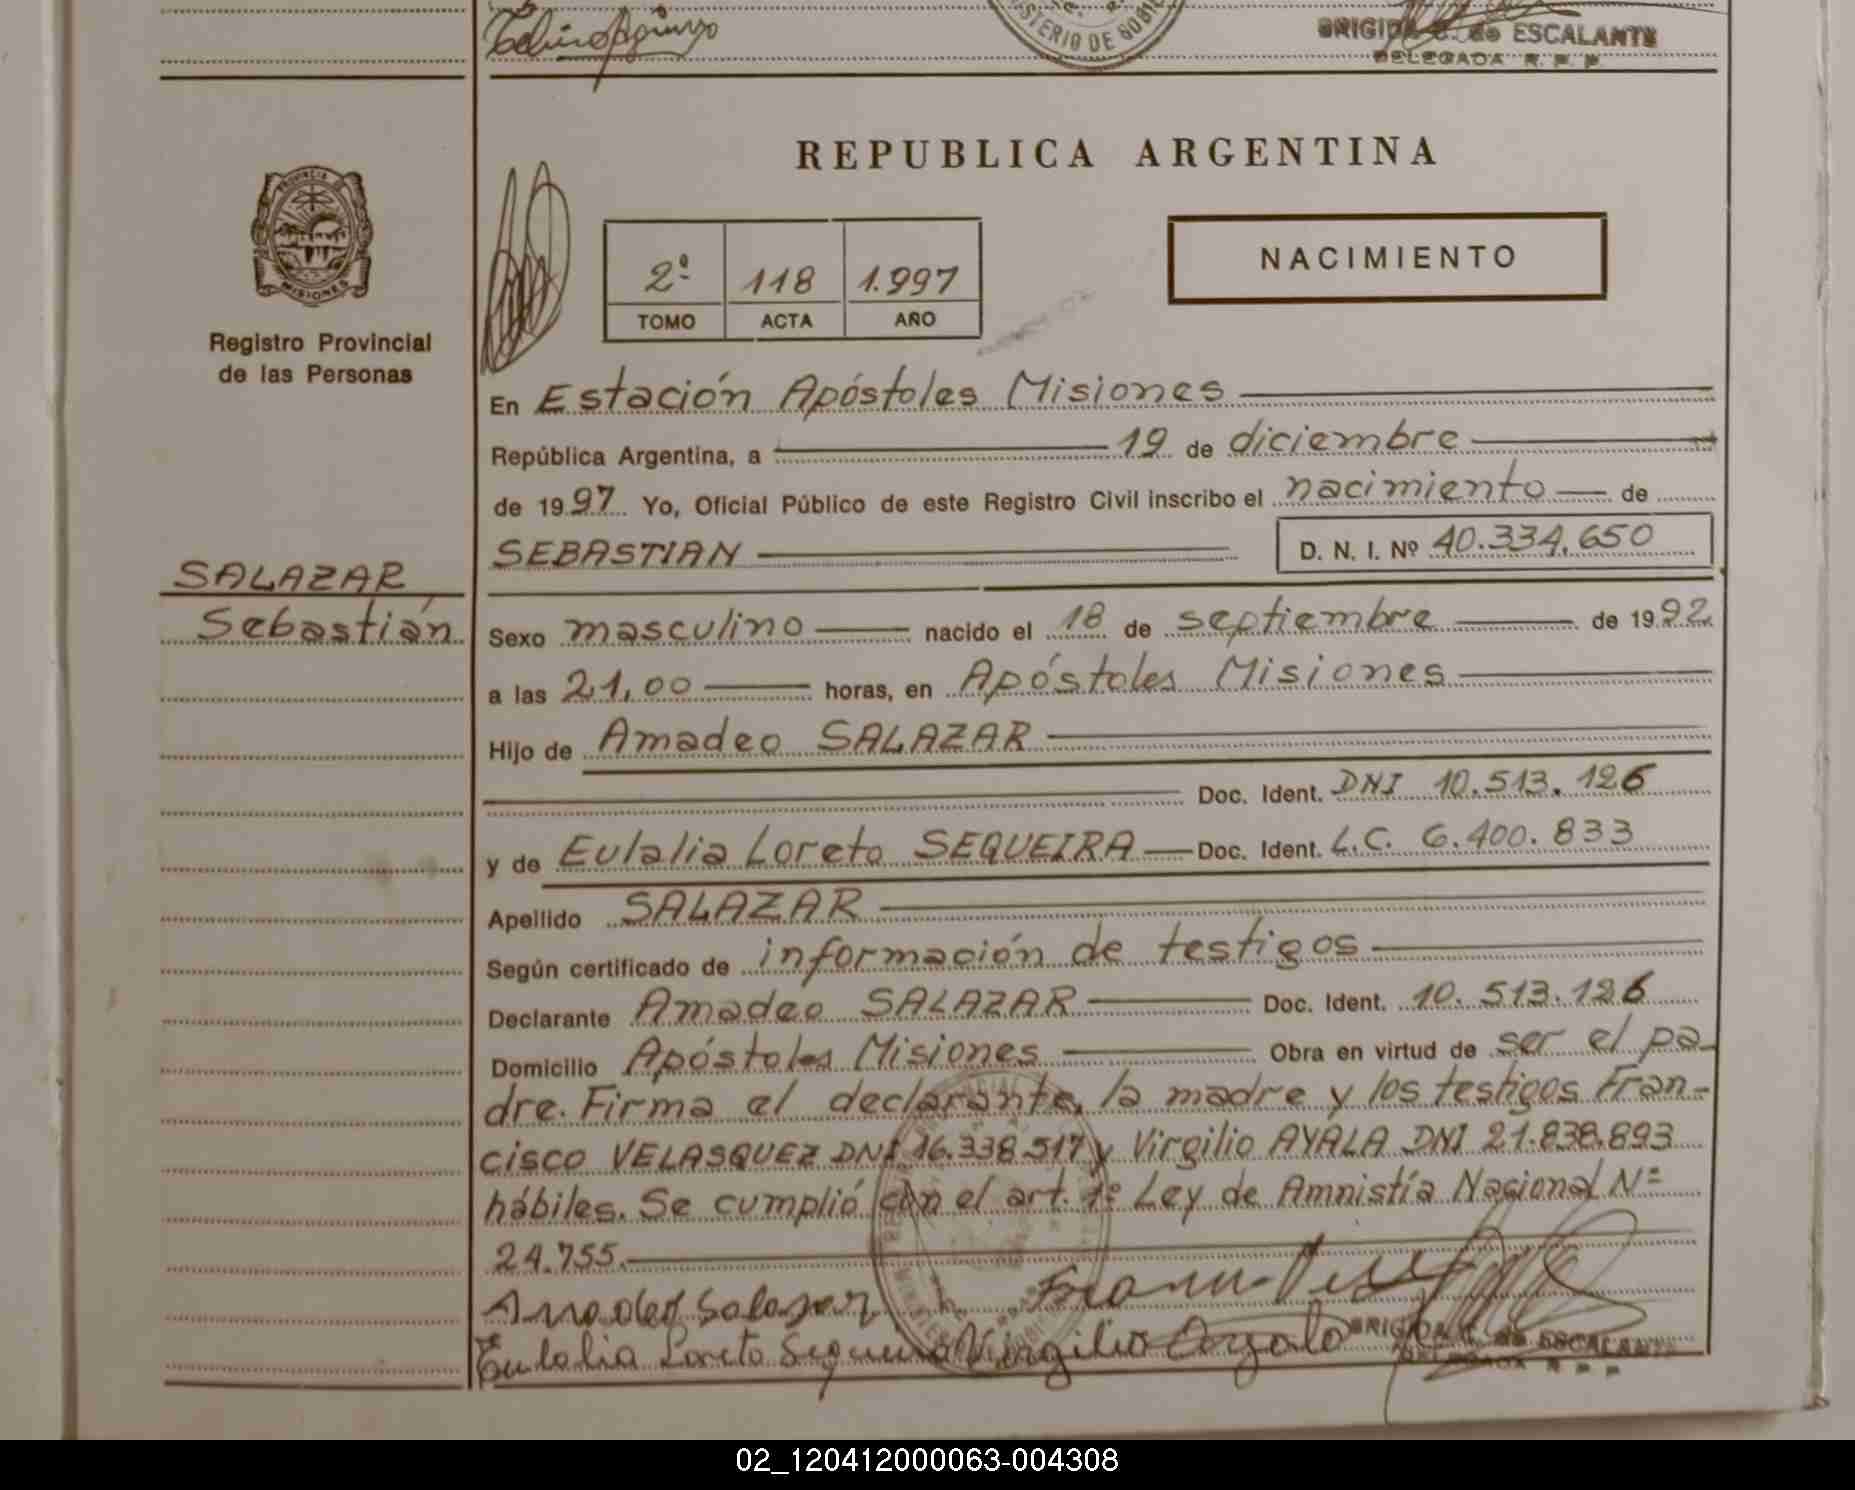 MINISTERIO DE GOBIE
BRIGIDA C. de ESCALANTE
DELEGADA R. P. P.
REPUBLICA ARGENTINA
PROVINCIA DE
MISIONES
Registro Provincial
de las Personas
2º 118 1.997
TOMO ACTA AÑO
NACIMIENTO
En Estación Apóstoles Misiones
República Argentina, a 19 de diciembre
de 1997 Yo, Oficial Público de este Registro Civil inscribo el nacimiento de
SEBASTIAN D. N. I. Nº 40.334.650
SALAZAR
Sebastián
Sexo masculino nacido el 18 de septiembre de 1992
a las 21,00 horas, en Apóstoles Misiones
Hijo de Amadeo SALAZAR
Doc. Ident. DNI 10.513.126
y de Eulalia Loreto SEQUEIRA Doc. Ident. L.C. 6.400.833
Apellido SALAZAR
Según certificado de información de testigos
Declarante Amadeo SALAZAR Doc. Ident. 10.513.126
Domicilio Apóstoles Misiones Obra en virtud de ser el pa-
dre. Firma el declarante, la madre y los testigos Fran-
cisco VELASQUEZ DNI 16.338.517 y Virgilio AYALA DNI 21.838.893
hábiles. Se cumplió con el art. 1º Ley de Amnistía Nacional Nº
24.755.
Amadeo Salazar
Eulalia Loreto Sequeira Virgilio Ayala BRIGIDA C. de ESCALANTE
DELEGADA R. P. P.
02_120412000063-004308